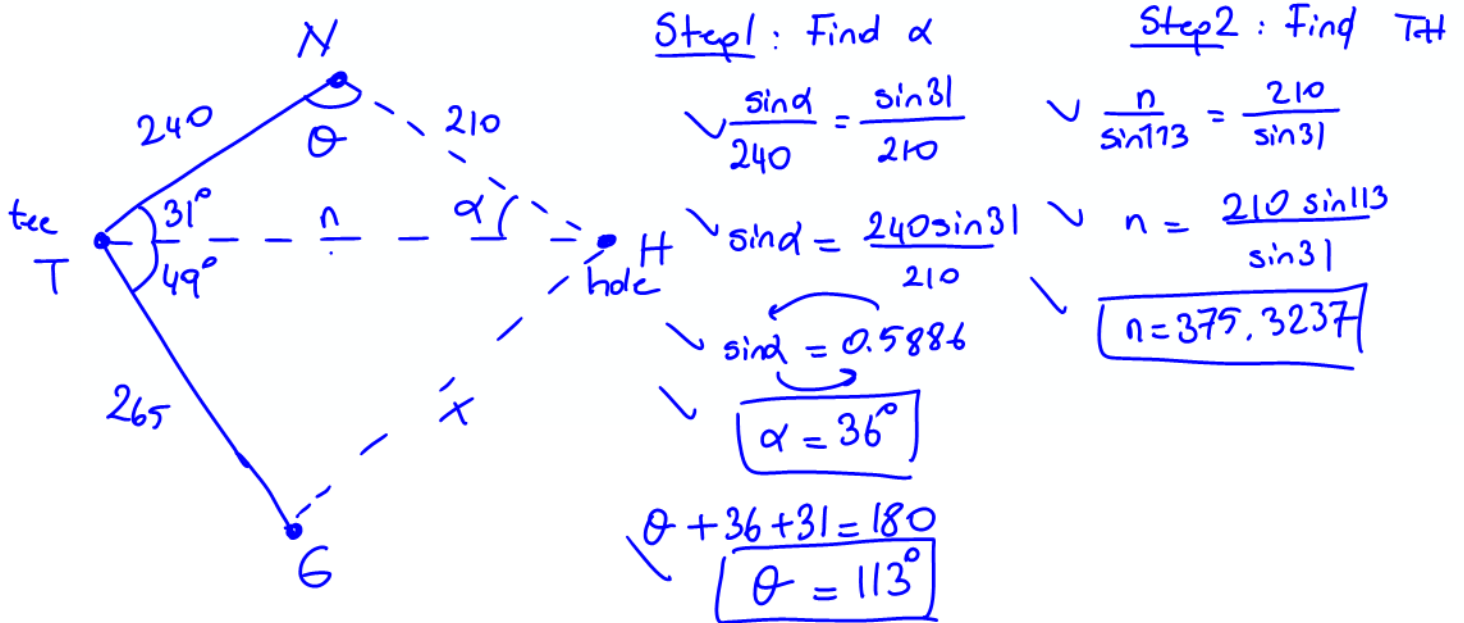 N
240
θ
210
tee
T
31°
49°
n
α
H
hole
265
x
G
Step1: Find α
sinα/240 = sin31/210
sinα = 240sin31/210
sinα = 0.5886
α = 36°
θ + 36 + 31 = 180
θ = 113°
Step2: Find TH
n/sin113 = 210/sin31
n = 210 sin113/sin31
n = 375.3237